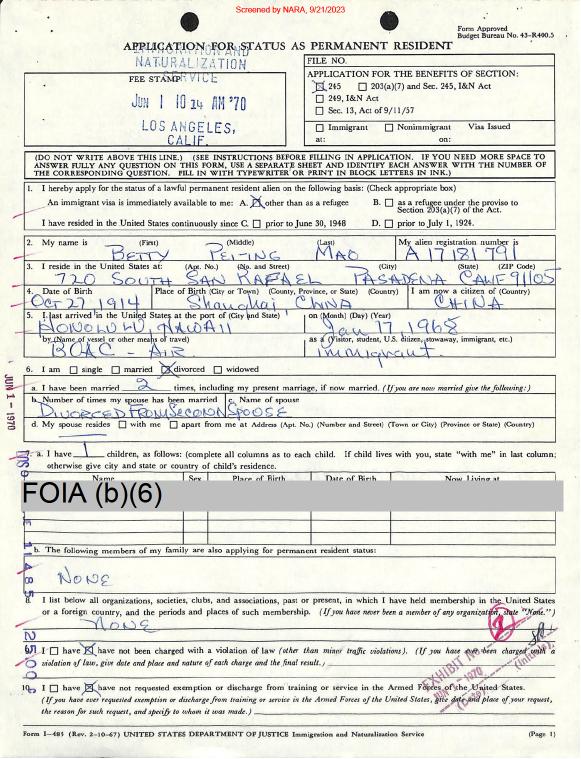 Screened by NARA, 9/21/2023
Form Approved
Budget Bureau No. 43-R400.5
APPLICATION FOR STATUS AS PERMANENT RESIDENT
IMMIGRATION AND
NATURALIZATION
SERVICE
FEE STAMP
JUN 1 10 14 AM '70
LOS ANGELES,
CALIF.
FILE NO.
APPLICATION FOR THE BENEFITS OF SECTION:
245 203(a)(7) and Sec. 245, I&N Act
249, I&N Act
Sec. 13, Act of 9/11/57
Immigrant Nonimmigrant Visa Issued
at: on:
(DO NOT WRITE ABOVE THIS LINE.) (SEE INSTRUCTIONS BEFORE FILLING IN APPLICATION. IF YOU NEED MORE SPACE TO
ANSWER FULLY ANY QUESTION ON THIS FORM, USE A SEPARATE SHEET AND IDENTIFY EACH ANSWER WITH THE NUMBER OF
THE CORRESPONDING QUESTION. FILL IN WITH TYPEWRITER OR PRINT IN BLOCK LETTERS IN INK.)
1. I hereby apply for the status of a lawful permanent resident alien on the following basis: (Check appropriate box)
An immigrant visa is immediately available to me: A. X other than as a refugee B. as a refugee under the proviso to
Section 203(a)(7) of the Act.
I have resided in the United States continuously since C. prior to June 30, 1948 D. prior to July 1, 1924.
2. My name is (First) (Middle) (Last) My alien registration number is
BETTY PEI-TING MAO A 17 181 791
3. I reside in the United States at: (Apt. No.) (No. and Street) (City) (State) (ZIP Code)
720 SOUTH SAN RAFAEL PASADENA CALIF 91105
4. Date of Birth Place of Birth (City or Town) (County, Province, or State) (Country) I am now a citizen of (Country)
OCT 27 1914 Shanghai, CHINA CHINA
5. I last arrived in the United States at the port of (City and State) on (Month) (Day) (Year)
HONOLULU, HAWAII Jan 17, 1968
by (Name of vessel or other means of travel) as a (Visitor, student, U.S. citizen, stowaway, immigrant, etc.)
BOAC - AIR immigrant
6. I am single married X divorced widowed
a. I have been married 2 times, including my present marriage, if now married. (If you are now married give the following:)
b. Number of times my spouse has been married c. Name of spouse
DIVORCED FROM SECOND SPOUSE
d. My spouse resides with me apart from me at Address (Apt. No.) (Number and Street) (Town or City) (Province or State) (Country)
JUN 1 - 1970
7. a. I have 1 children, as follows: (complete all columns as to each child. If child lives with you, state "with me" in last column;
otherwise give city and state or country of child's residence.
Name Sex Place of Birth Date of Birth Now Living at
FOIA (b)(6)
b. The following members of my family are also applying for permanent resident status:
NONE
8. I list below all organizations, societies, clubs, and associations, past or present, in which I have held membership in the United States
or a foreign country, and the periods and places of such membership. (If you have never been a member of any organization, state "None.")
NONE
9. I have X have not been charged with a violation of law (other than minor traffic violations). (If you have ever been charged with a
violation of law, give date and place and nature of each charge and the final result.)
EXHIBIT NO.
1970
(Date)
(Initials)
10. I have X have not requested exemption or discharge from training or service in the Armed Forces of the United States.
(If you have ever requested exemption or discharge from training or service in the Armed Forces of the United States, give date and place of your request,
the reason for such request, and specify to whom it was made.)
Form I-485 (Rev. 2-10-67) UNITED STATES DEPARTMENT OF JUSTICE Immigration and Naturalization Service (Page 1)